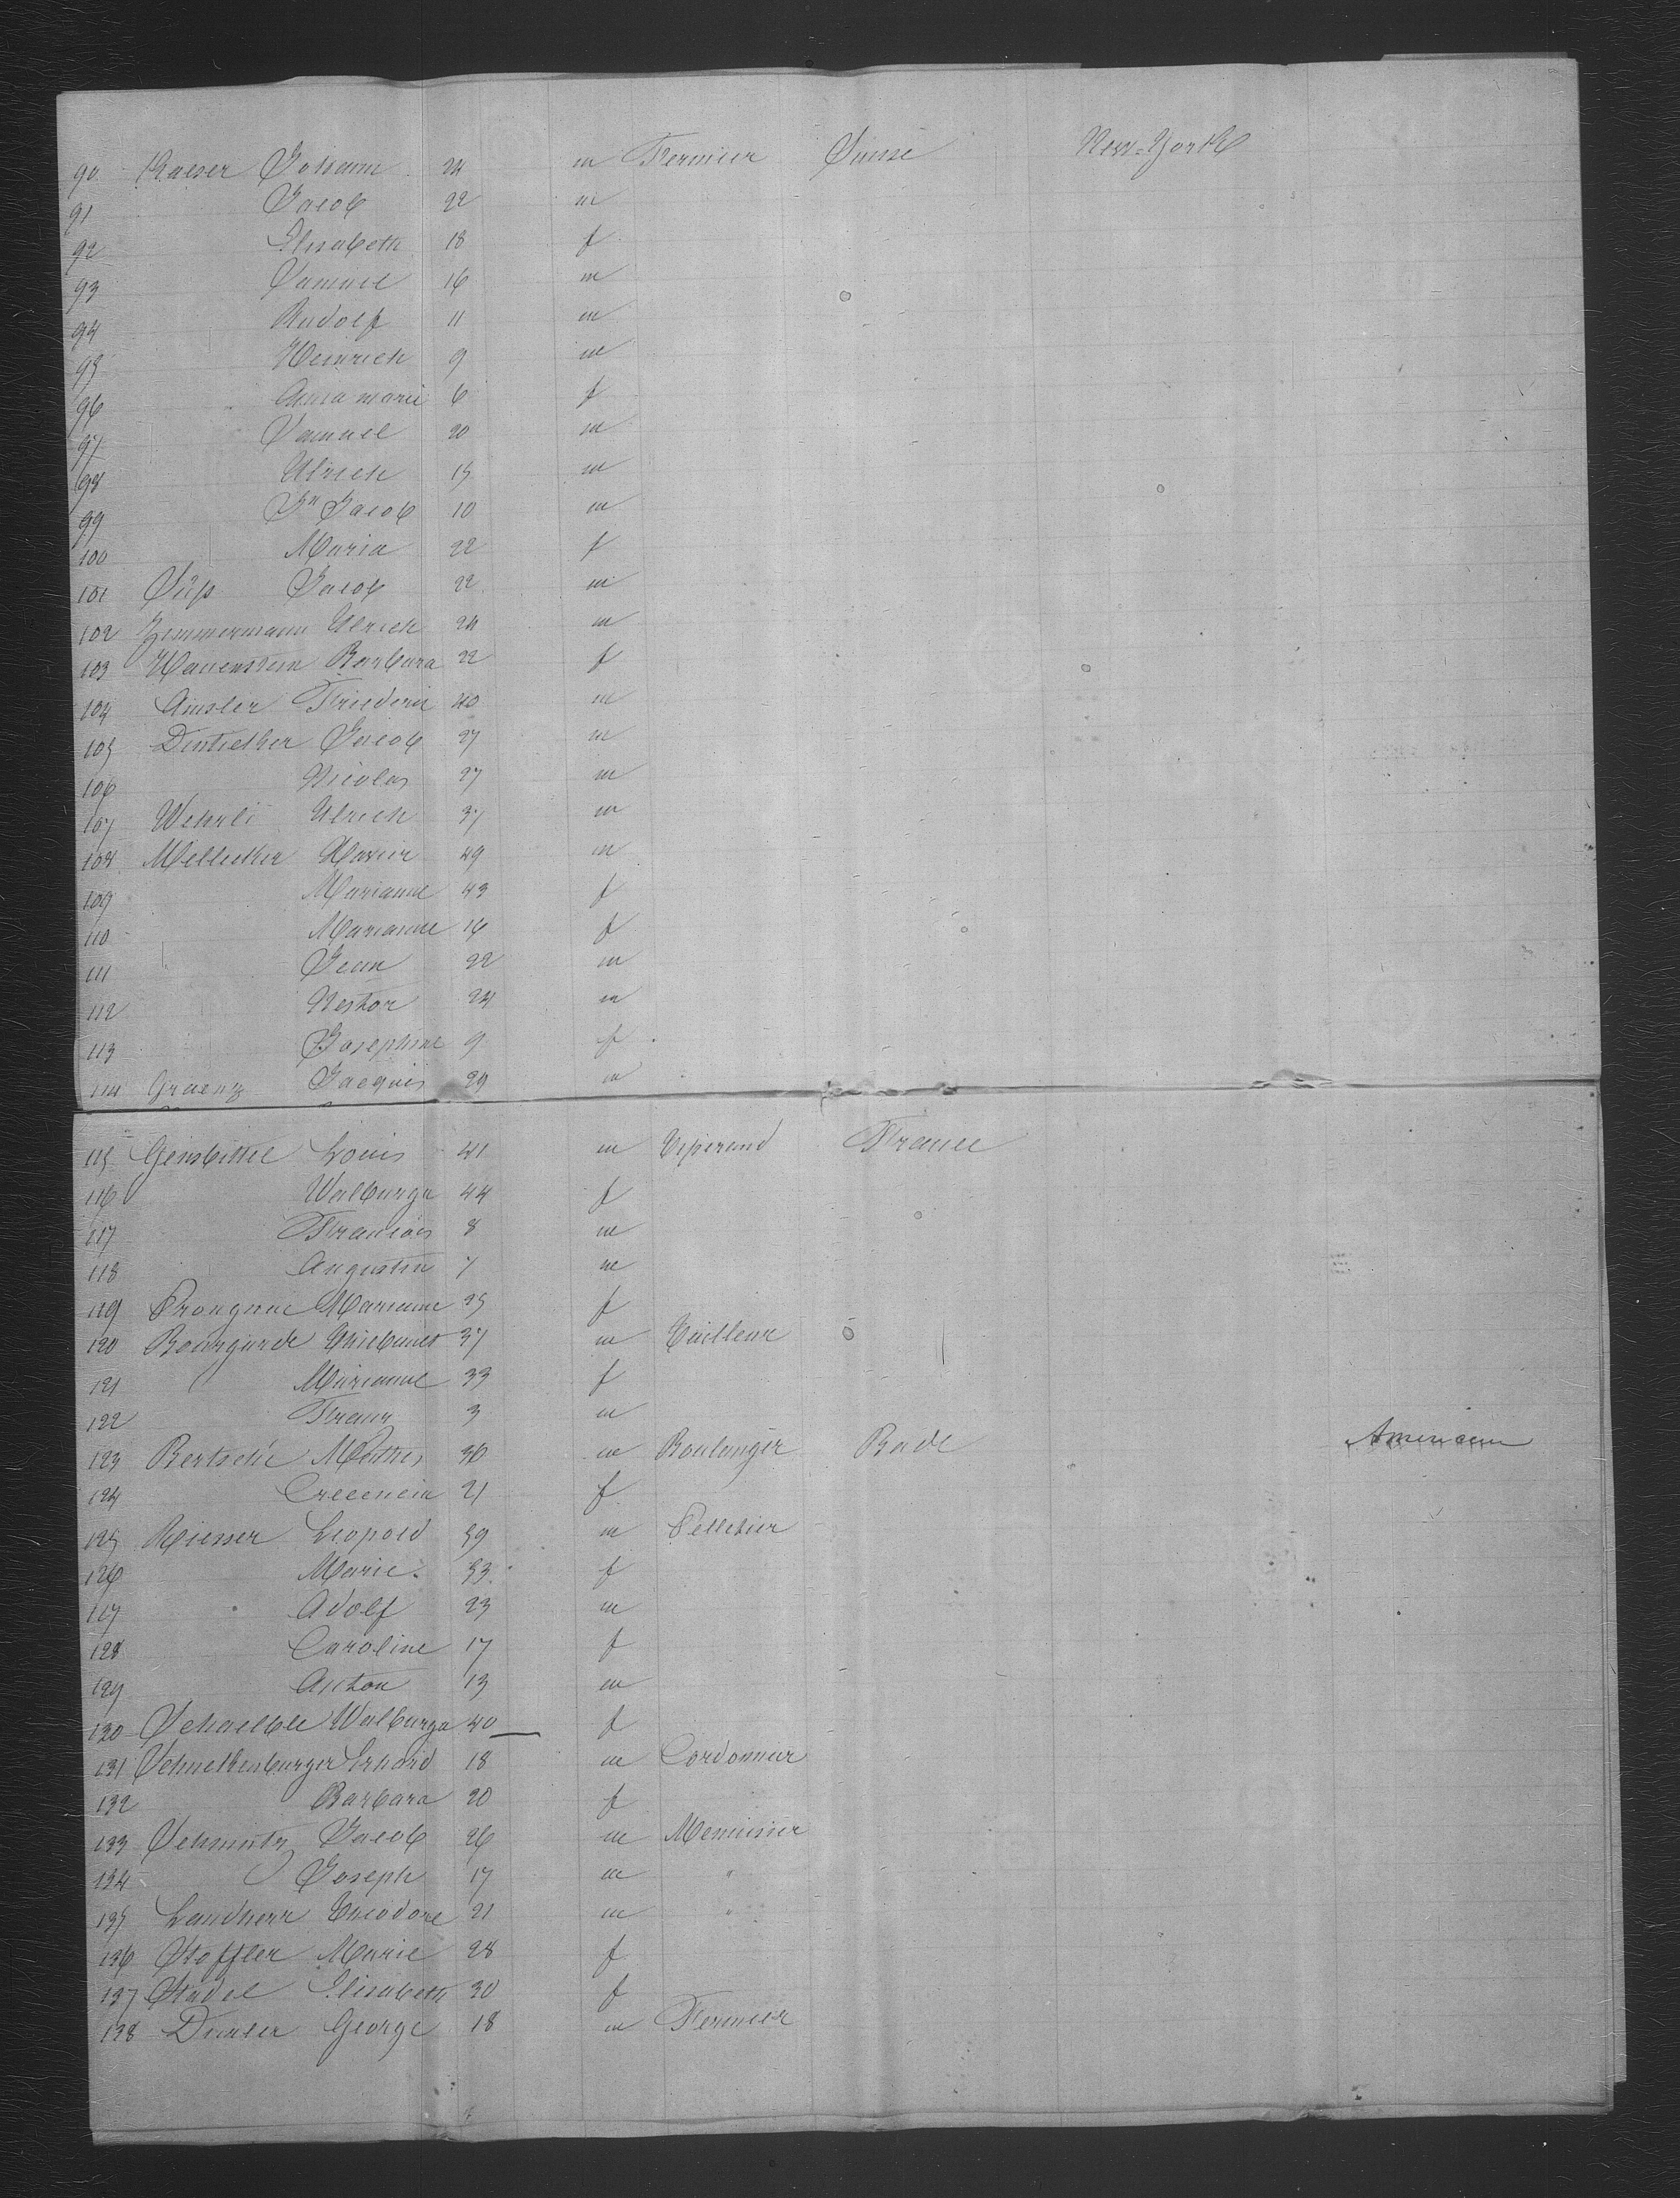 90 Kaeser Johann 24 m Fermier Suisse New-York
91 Jacob 22 m
92 Elisabeth 18 f
93 Samuel 16 m
94 Rudolf 11 m
95 Heinrich 9 m
96 Anna marie 6 f
97 Samuel 20 m
98 Ulrich 15 m
99 Jn Jacob 10 m
100 Maria 22 f
101 Jacob 22 m
102 Zimmermann Ulrich 24 m
103 Hauenstein Barbara 22 f
104 Amsler Friederic 40 m
105 Jacob 27 m
106 Nicolas 27 m
107 Wehrli Ulrich 37 m
108 Xavier 49 m
109 Marianne 43 f
110 Marianne 16 f
111 Jean 22 m
112 Nestor 24 m
113 Josephine 9 f
114 Jacques 29 m
115 Louis 41 m France
116 Walburga 44 f
117 Francois 8 m
118 Augustin 7 m
119 Marianne 25 f
120 37 m Tailleur
121 Marianne 33 f
122 3 m
123 Bertsche 30 m Boulanger Bade Americain
124 21 f
125 Riesser Leopold 59 m Pelletier
126 Marie 53 f
117 Adolf 23 m
128 Caroline 17 f
129 Anton 13 m
130 Schaelble Walburga 40 f
131 Schneckenburger Erhard 18 m Cordonnier
132 Barbara 20 f
133 Schmutz Jacob 26 m Menuisier
134 Joseph 17 m "
135 Landherr Theodore 21 m "
136 Stoffler Marie 28 f
137 Stadel Elisabeth 30 f
138 George 18 m Fermier